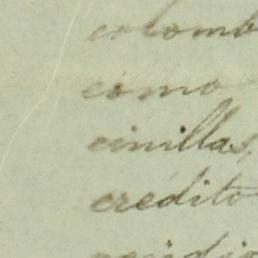 colomb
como
cinillas,
crédito